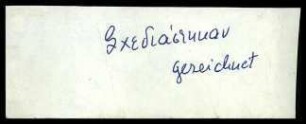 Σχεδιάστηκαν
gezeichnet